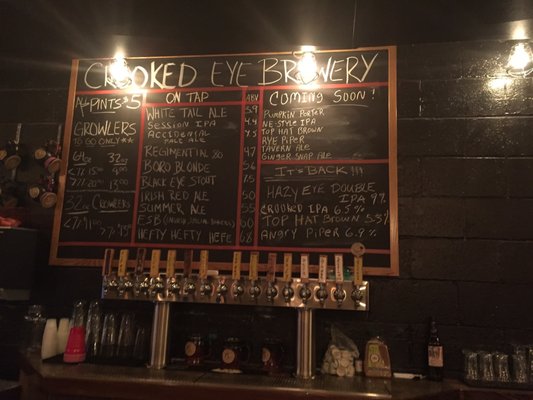 CROOKED EYE BREWERY
ALL PINTS $5
GROWLERS
TO GO ONLY**
64oz 32oz
32oz CROWLERS
ON TAP
ABV
WHITE TAIL ALE 5.9
SESSION IPA 4.4
ACCIDENTAL
PALE ALE
REGIMENTIAL 80 4.7
BORO BLONDE
BLACK EYE STOUT
IRISH RED ALE
SUMMER ALE
ESB
HEFTY HEFTY HEFE
COMING SOON!
PUMPKIN PORTER
NE-STYLE IPA
TOP HAT BROWN
RYE PIPER
TAVERN ALE
GINGER SNAP ALE
IT'S BACK!!!
HAZY EYE DOUBLE
IPA 9%
CROOKED IPA 6.5%
TOP HAT BROWN 5.5%
ANGRY PIPER 6.9%